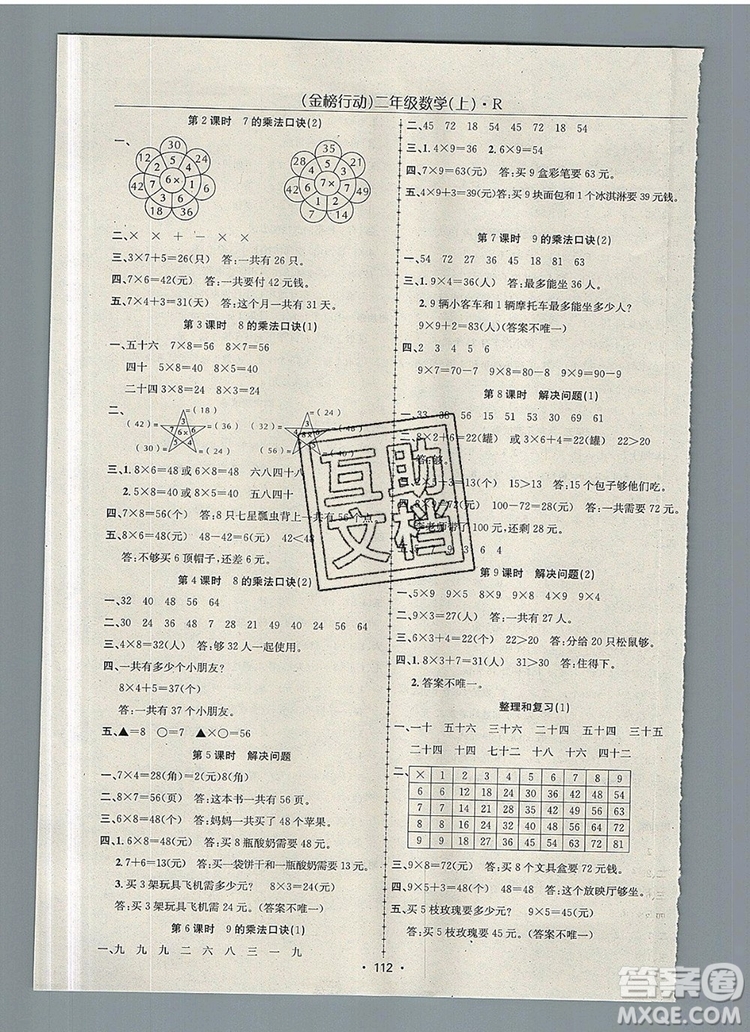 (金榜行动)二年级数学(上)·R
第2课时 7的乘法口诀(2)
一、
30 24 36 18 42 12
5 4 6 3 7 2
6×
28 14 42 49 35 21
4 2 6 7 5 3
7×
二、× × + - × ×
三、3×7+5=26(只) 答:一共有26只。
四、7×6=42(元) 答:一共要付42元钱。
五、7×4+3=31(天) 答:这个月一共有31天。
第3课时 8的乘法口诀(1)
一、五十六 7×8=56 8×7=56
四十 5×8=40 8×5=40
二十四 3×8=24 8×3=24
二、
三、1. 8×6=48 或 6×8=48 六八四十八
2. 5×8=40 或 8×5=40 五八四十
四、7×8=56(个) 答:8只七星瓢虫背上一共有56个点
五、6×8=48(元) 42<48
答:不够买6顶帽子,还差6元。
第4课时 8的乘法口诀(2)
一、32 40 48 56 64
二、30 40 31 48 49 28 24 56 64
三、4×8=32(人) 答:够32人一起使用。
四、一共有多少个小朋友?
8×4+5=37(个)
答:一共有37个小朋友。
五、▲=8 ○=7 ▲×○=56
第5课时 解决问题
一、7×4=28(角)=2(元)8(角)
二、8×7=56(页) 答:这本书一共有56页。
三、6×8=48(个) 答:妈妈一共买了48个苹果。
四、1. 4×8=32(元) 答:买8瓶酸奶需要32元。
2. 7+6=13(元) 答:买一袋饼干和一瓶酸奶需要13元。
3. 买3架玩具飞机需多少元? 8×3=24(元)
答:买3架玩具飞机需24元。(答案不唯一)
第6课时 9的乘法口诀(1)
一、九 九 九 二 六 八 三 一 九
二、45 72 45 18 63 54
三、1. 4×9=36 2. 6×9=54
四、7×9=63(元) 答:买9盒彩笔要63元。
五、4×9+3=39(元) 答:买9块面包和1个冰淇淋要39元钱。
第7课时 9的乘法口诀(2)
一、54 72 27 36 18 63 81
三、1. 9×4=36(人) 答:最多能坐36人。
2. 9辆小客车和1辆摩托车最多能坐多少人?
9×9+2=83(人) (答案不唯一)
四、2 3 4 5 6
9×8=70+2 9×7=60+3 9×6=50+4
第8课时 解决问题(1)
一、33 38 56 15 51 69 61
8×2+6=22(罐) 或 3×6+4=22(罐) 22>20
答:够。
×3=15(个) 15>13 答:15个包子够他们吃。
8×9=72(元) 100-72=28(元) 答:一共需要72元。
老师带了100元,还剩28元。
第9课时 解决问题(2)
一、5×9 9×9 4×9
三、6×3+4=22(个) 22>20 答:分给20只松鼠够。
四、1. 9×3+7=31(人) 31<36 答:住得下。
2. 答案不唯一。
整理和复习(1)
一、一十 四十五 三十六 二十四 五十四 三十五
二十四 四十 四十二 十八 十六 四十
二、
× 1 2 3 4 5 6 7 8 9
6 6 12 18 24 30 36 42 48 54
7 7 14 21 28 35 42 49 56 63
8 8 16 24 32 40 48 56 64 72
9 9 18 27 36 45 54 63 72 81
三、9×8=72(元) 答:买8个文具盒要72元。
四、9×5+3=48(个) 48=48 答:这个放映厅够坐。
五、买5枝玫瑰要多少元? 9×5=45(元)
答:买5枝玫瑰要45元。(答案不唯一)
· 112 ·
互助文档
答案圈
MXQE.COM